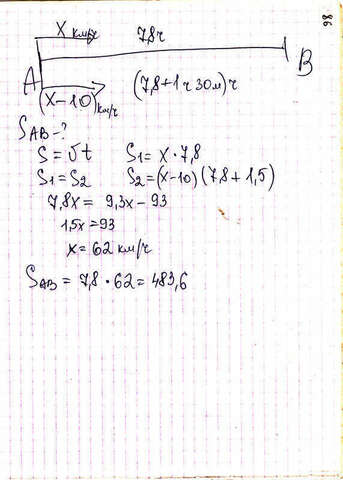 86
X км/ч 7,8ч
A B
(X-10) км/ч (7,8+1ч 30м)ч
S_AB-?
S=Vt S₁=X·7,8
S₁=S₂ S₂=(X-10)(7,8+1,5)
7,8X= 9,3X-93
1,5X=93
X=62 км/ч
S_AB=7,8·62=483,6